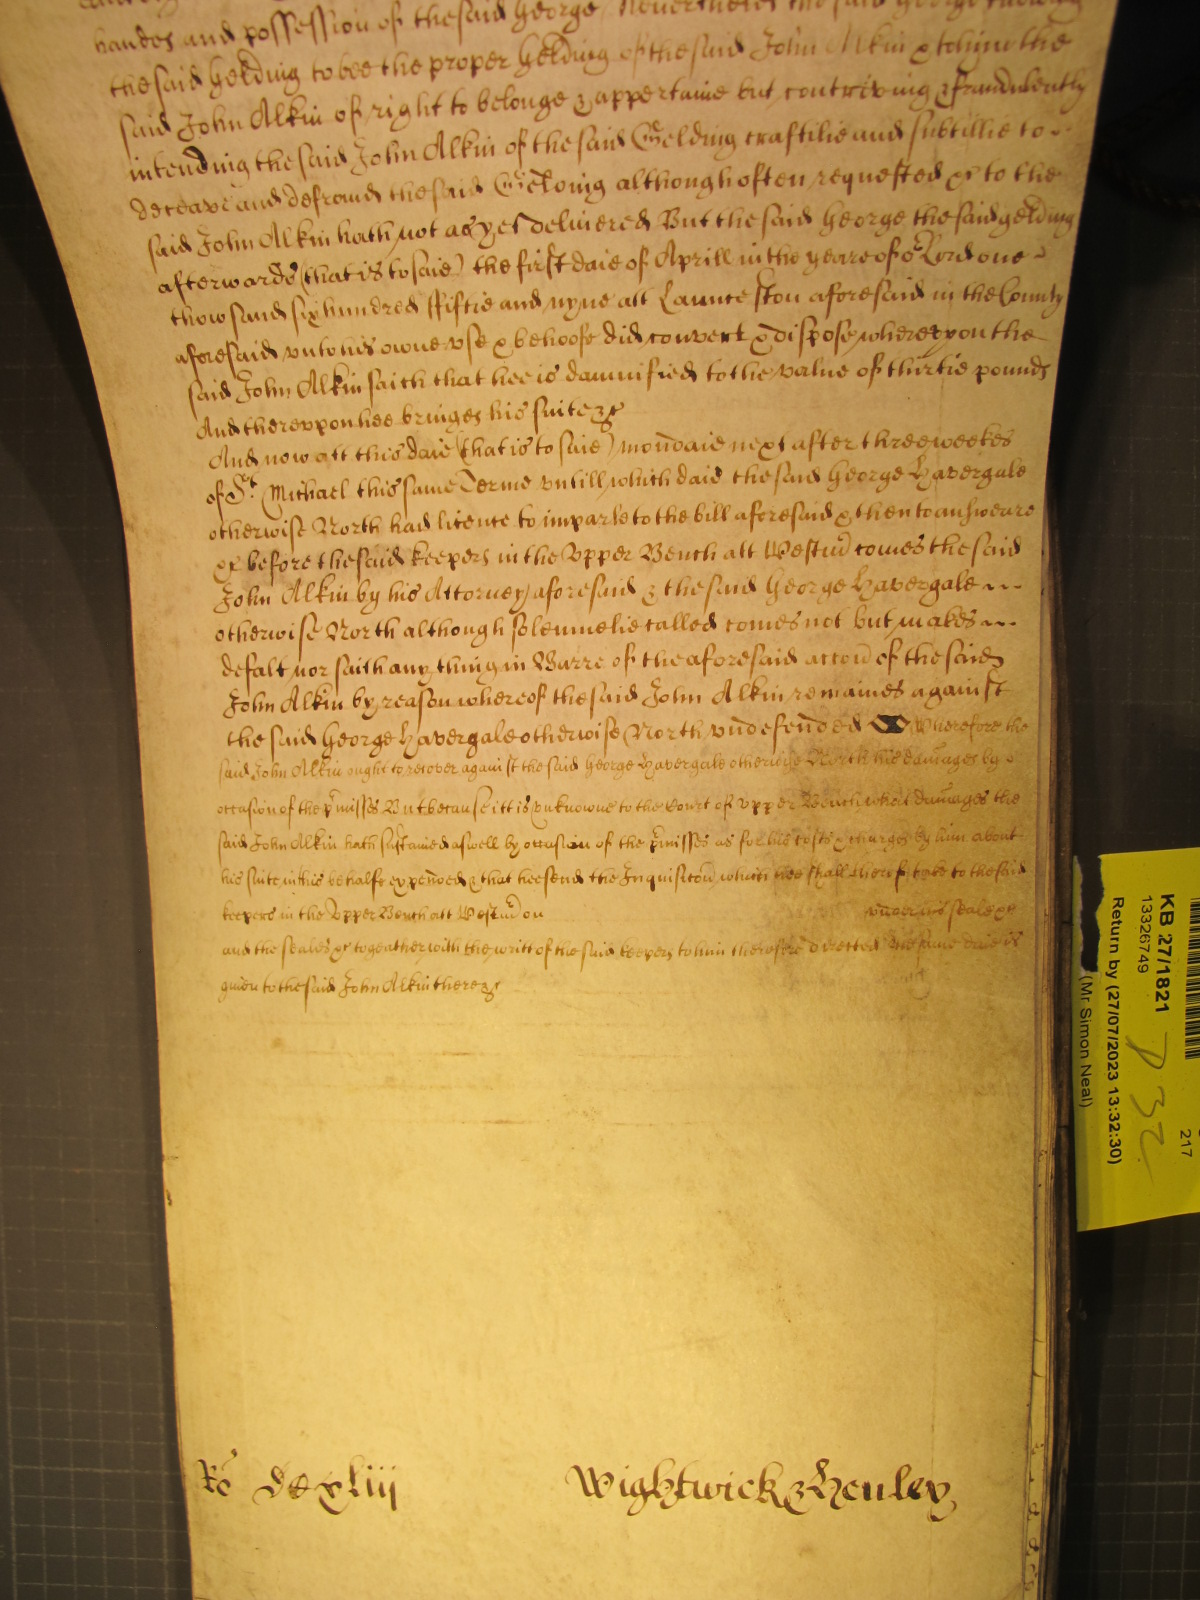 handes and possession of the said George Neverthelesse the said George
the said Gelding to bee the proper Gelding of the said John Alkin & to him the
said John Alkin of right to belonge & appertaine but contriving & fraudulently
intending the said John Alkin of the said Gelding craftilie and subtillie to
deceave and defraud the said Gelding although often requested &c to the
said John Alkin hath not as yet delivered But the said George the said gelding
afterwards (that is to saie) the first daie of Aprill in the yeare of or Lord one
thowsand six hundred ffiftie and nyne att Launceston aforesaid in the County
aforesaid unto his owne use & behoofe did convert & dispose whereupon the
said John Alkin saith that hee is damnified to the value of thirtie pounds
And thereuppon hee bringes his suite &c
And now att this daie (that is to saie) mondaie next after three weekes
of St Michael this same Terme untill which daie the said George Havergale
otherwise North had licence to imparle to the bill aforesaid & then to answeare
&c before the said keepers in the Upper Bench att Westm comes the said
John Alkin by his Attorney aforesaid & the said George Havergale
otherwise North although solemnelie called comes not but makes
defalt nor saith any thing in Barre of the aforesaid accon of the said
John Alkin by reason whereof the said John Alkin remaines against
the said George Havergale otherwise North undefended Wherefore the
said John Alkin ought to recover against the said George Havergale otherwise North his damages by
occasion of the pmisses But because itt is unknowne to the Court of Upper Bench what damages the
said John Alkin hath sustained aswell by occasion of the pmisses as for his costs & charges by him about
his suite in this behalfe expended & that hee send the Inquisicon which hee shall thereof take to the said
keepers in the Upper Bench att Westm on under his seale &c
and the seales &c togeather with the writt of the said keepers to him therefore directed the same daie is
given to the said John Alkin there &c
Ro dcxliii
Wightwick & Henley
KB 27/1821
13326749
Return by (27/07/2023 13:32:30)
(Mr Simon Neal)
217